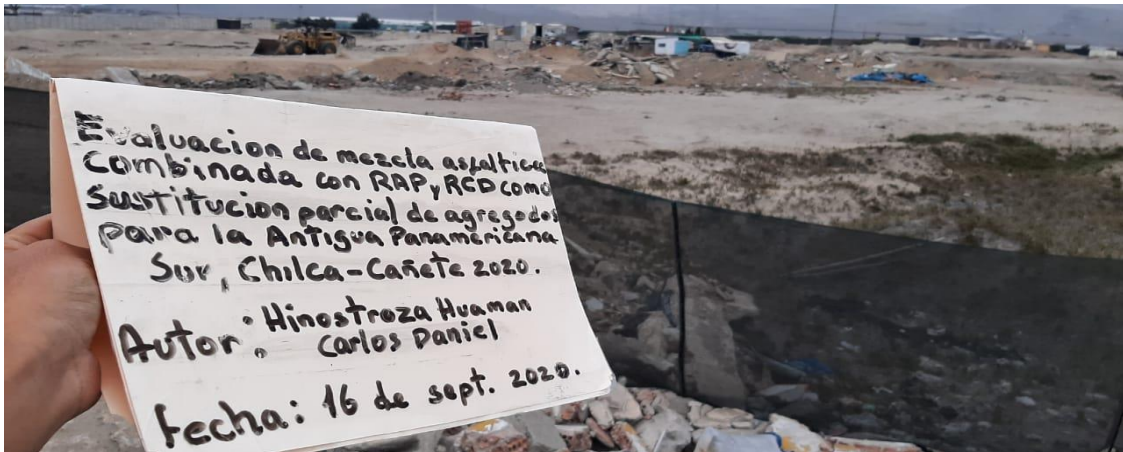 Evaluacion de mezcla asfaltica
Combinada con RAP y RCD como
sustitucion parcial de agregados
para la Antigua Panamericana
Sur, Chilca-Cañete 2020.
Autor: Hinostroza Huaman
Carlos Daniel
fecha: 16 de sept. 2020.